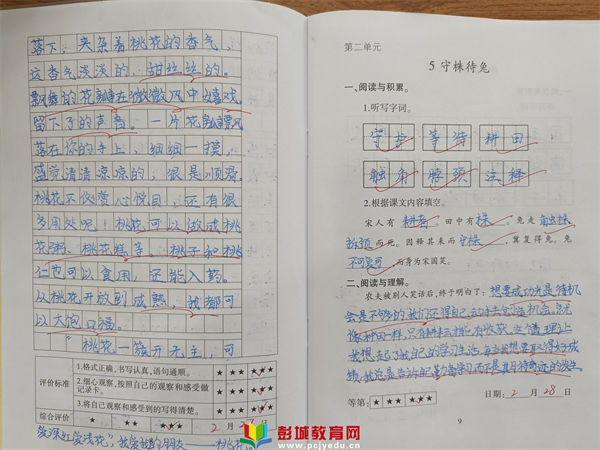 落下，夹杂着桃花的香气，
这香气淡淡的，甜丝丝的。
飘舞的花瓣在微微风中嬉戏
留下了的声音。一片花瓣飘
落在你的手上，细细一摸，
感觉清清凉凉的，很是顺滑。
桃花不仅赏心悦目，还有很
多用处呢！桃花可以做成桃
花粥、桃花糕等。桃子和桃
仁也可以食用，还能入药。
以桃花开放到成熟，就都可
以大饱口福。
“桃花一簇开无主，可
评价标准
1.格式正确，书写认真，语句通顺。 ★★★★★
2.细心观察，按照自己的观察和感受做记录卡。 ★★★★★
3.将自己观察和感受到的写得清楚。 ★★★★★
综合评价 ★★★★★ 2月27日
爱深红爱浅红”，我爱我的朋友——桃花
第二单元
5 守株待兔
一、阅读与积累。
1.听写字词。
守护 等待 耕田
触角 脖颈 注释
2.根据课文内容填空。
宋人有 耕者 。田中有 株 。兔走 触株
折颈 而死。因释其耒而 守株 ，冀复得兔。兔
不可复可 ，而身为宋国笑。
二、阅读与理解。
农夫被别人笑话后，终于明白了：想要成功光是等待机
会是不够的，我们还得自己主动去创造机会，就
像种田一样，只有耕耘才能有收获。这个道理让
我想起了我自己的学习生活，每当我想要取得好成
绩，我总是告诉自己勤奋学习而不是期待奇迹的发生
等第：★★★★★ 日期：2月28日
9
彭城教育网
www.pcjyedu.cn